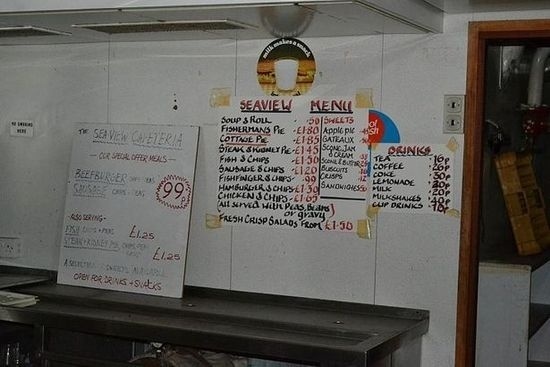 milk makes a snack
NO SMOKING
HERE
THE SEAVIEW CAFETERIA
OUR SPECIAL OFFER MEALS
BEEFBURGER CHIPS + PEAS
SAUSAGE CHIPS + PEAS
99
ALSO SERVING-
FISH CHIPS + PEAS £1.25
STEAK + KIDNEY PIE, CHIPS, PEAS
£1.25
A SELECTION SWEETS AVAILABLE
OPEN FOR DRINKS + SNACKS
SEAVIEW MENU
SOUP & ROLL .50
FISHERMANS PIE £1.80
COTTAGE PIE £1.85
STEAK & KIDNEY PIE £1.45
FISH & CHIPS £1.30
SAUSAGE & CHIPS £1.20
FISHFINGER & CHIPS .99
HAMBURGER & CHIPS £1.30
CHICKEN & CHIPS £1.65
ALL SERVED WITH PEAS, BEANS
or gravy
FRESH CRISP SALADS FROM £1.50
SWEETS
Apple pie
GATEAUX
SCONE, JAM
& CREAM
SCONE & BUTTER
BISCUITS
CRISPS
SANDWICHES
DRINKS
TEA 16p
COFFEE
COKE
LEMONADE
MILK
MILKSHAKES
CUP DRINKS